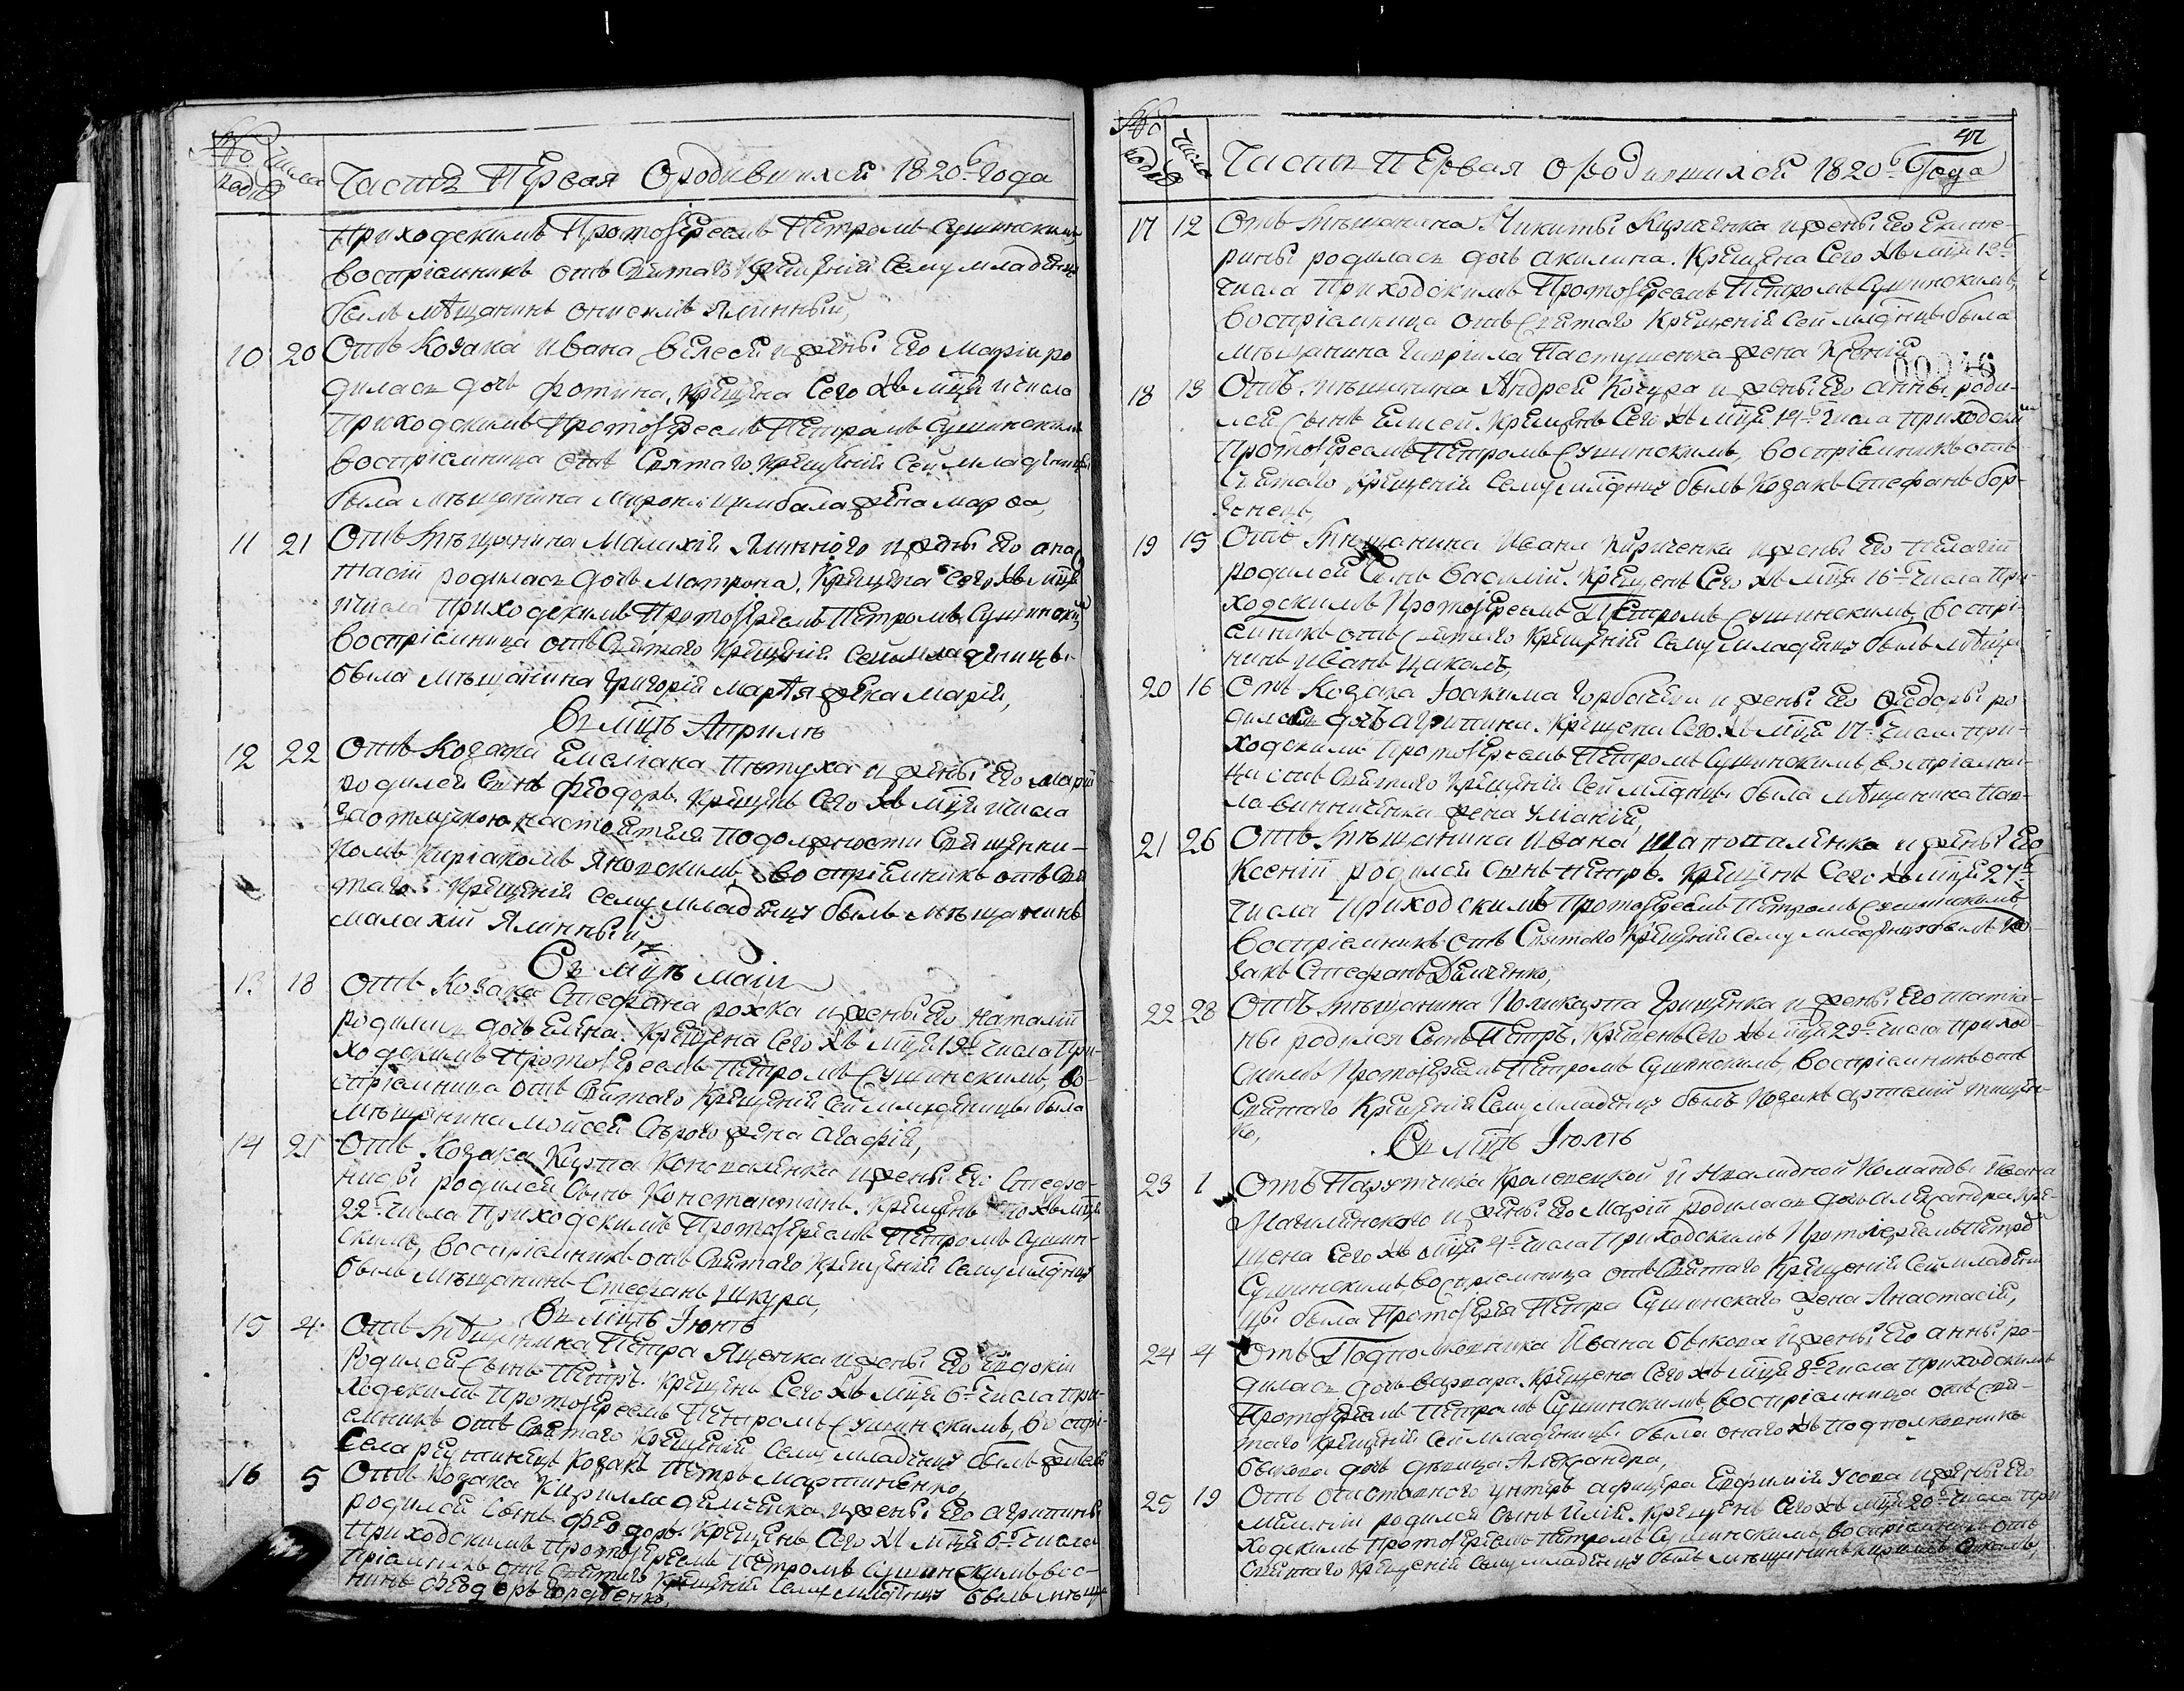 Число
Часть Первая О родившихся 1820го года
Приходскимъ Протоіереемъ Петромъ Сушинскимъ
воспріемникъ отъ Святаго Крещенія Сему младенцу
былъ мѣщанинъ Онисимъ Ялинный,
10 20 Отъ Козака Ивана и жены Его Маріи ро
дилась дочь Фотина, Крещена Сего жъ мца и числа
Приходскимъ Протоіереемъ Петромъ Сушинскимъ
воспріемница отъ Святаго Крещенія Сей младеницы
была мѣщанина Мирона Цимбала жена Марѳа,
11 21 Отъ Мѣщанина Малахія Ялинного и жены Его Ана
стасіи родилась дочь Матрона, Крещена Сего жъ мца
и числа Приходскимъ Протоіереемъ Петромъ Сушинскимъ
воспріемница отъ Святаго Крещенія Сей младеницы
была мѣщанина Григорія жена Марія,
Въ мцѣ Априлѣ
12 22 Отъ Козака Емеліана Пѣтуха и жены Его Маріи
родился Сынъ Феодоръ. Крещенъ Сего жъ мца и числа
за отлучкою настоятеля по должности Священни-
комъ Киріакомъ воспріемникъ отъ Свя
таго Крещенія Сему младенцу былъ мѣщанинъ
Малахій Ялинный
Въ мцѣ Маіи
13 18 Отъ Козака Стефана и жены Его Наталіи
родилась дочь Елена. Крещена Сего жъ мца 19го числа При-
ходскимъ Протоіереемъ Петромъ Сушинскимъ, во-
спріемница отъ Святаго Крещенія Сей младеницы была
мѣщанина Мойсея Сѣрого жена Агафія,
14 21 Отъ Козака Карпа Коноваленка и жены Его Стефа-
ниды родился Сынъ Константинъ. Крещенъ Сего жъ мца
22го числа Приходскимъ Протоіереемъ Петромъ Сушин-
скимъ, воспріемникъ отъ Святаго Крещенія Сему младенцу
былъ мѣщанинъ Стефанъ Шкура,
Въ мцѣ Іюнѣ
15 4 Отъ Мѣщанина Петра Яценка и жены Его Евдокіи
Родился Сынъ Петръ. Крещенъ Сего жъ мца 6го числа При-
ходскимъ Протоіереемъ Петромъ Сушинскимъ, воспрі-
емникъ отъ Святаго Крещенія Сему младенцу былъ
Села Козакъ Петръ Мартиненко,
16 5 Отъ Козака Кирилла Демченка и жены Его Агрипины
родился Сынъ Феодоръ. Крещенъ Сего жъ мца 6го числа
Приходскимъ Протоіереемъ Петромъ Сушинскимъ вос-
пріемникъ отъ Святаго Крещенія Сему младенцу былъ мѣща-
нинъ Феодоръ
Число
Часть Первая О родившихся 1820го Года
17 12 Отъ Мѣщанина Никиты Кириченка и жены Его Екате-
рины родилась дочь Акилина. Крещена Сего жъ мца 12го
числа Приходскимъ Протоіереемъ Петромъ Сушинскимъ,
воспріемница отъ Святаго Крещенія Сей младенцы была
мѣщанина Гавріила Пастушенка жена Ксенія,
18 13 Отъ Мѣщанина Андрея Коцура и жены Его Анны роди-
лся Сынъ Елисей. Крещенъ Сего жъ мца 14го числа Приходским
Протоіереемъ Петромъ Сушинскимъ, воспріемникъ отъ
Святаго Крещенія Сему младенцу былъ Козакъ Стефанъ Бор-
зенецъ,
19 15 Отъ Мѣщанина Ивана Кириченка и жены Его Пелагіи
родился Сынъ Василій. Крещенъ Сего жъ мца 16го числа При-
ходскимъ Протоіереемъ Петромъ Сушинскимъ, воспрі-
емникъ отъ Святаго Крещенія Сему младенцу былъ мѣща
нинъ Иванъ
20 16 Отъ Козака Іоакима Горбачева и жены Его Ѳеодоры ро
дилась дочь Агрипина. Крещена Сего жъ мца 17го числа При-
ходскимъ Протоіереемъ Петромъ Сушинскимъ, воспріемни-
ца отъ Святаго Крещенія Сей младенцы была мѣщанина Пав-
ла Винниченка жена Уліанія,
21 26 Отъ Мѣщанина Ивана Шаповаленка и жены Его
Ксеніи родился Сынъ Петръ. Крещенъ Сего жъ мца 27го
числа Приходскимъ Протоіереемъ Петромъ Сушинскимъ,
воспріемникъ отъ Святаго Крещенія Сему младенцу былъ Ко-
закъ Стефанъ Демченко,
22 28 Отъ Мѣщанина Поликарпа Грищенка и жены Его Татіа-
ны родился Сынъ Петръ. Крещенъ Сего жъ мца 29го числа Приход-
скимъ Протоіереемъ Петромъ Сушинскимъ, воспріемникъ отъ
Святаго Крещенія Сему младенцу былъ Козакъ Артемій Тищен-
ко,
Въ мцѣ Іюлѣ
23 1 Отъ Парутчика Кролевецкой Инвалидной Команды Ивана
Магилянского и жены Его Маріи родилась дочь Александра, Кре-
щена Сего жъ мца 4го числа Приходскимъ Протоіереемъ Петром
Сушинскимъ, воспріемница отъ Святаго Крещенія Сей младени
цы была Протоіерея Петра Сушинскаго жена Анастасія,
24 4 Отъ Подполковника Ивана Быкова и жены Его Анны ро-
дилась дочь Варвара. Крещена Сего жъ мца 8го числа Приходскимъ
Протоіереемъ Петромъ Сушинскимъ, воспріемница отъ Свя-
таго Крещенія Сей младеницы была онаго жъ Подполковника
Быкова дочь дѣвица Александра,
25 19 Отъ отставного унтеръ афицера Евфимія Усова и жены Его
Меланіи родился Сынъ Илія. Крещенъ Сего жъ мца 20го числа При
ходскимъ Протоіереемъ Петромъ Сушинскимъ, воспріемникъ отъ
Святаго Крещенія Сему младенцу былъ мѣщанинъ